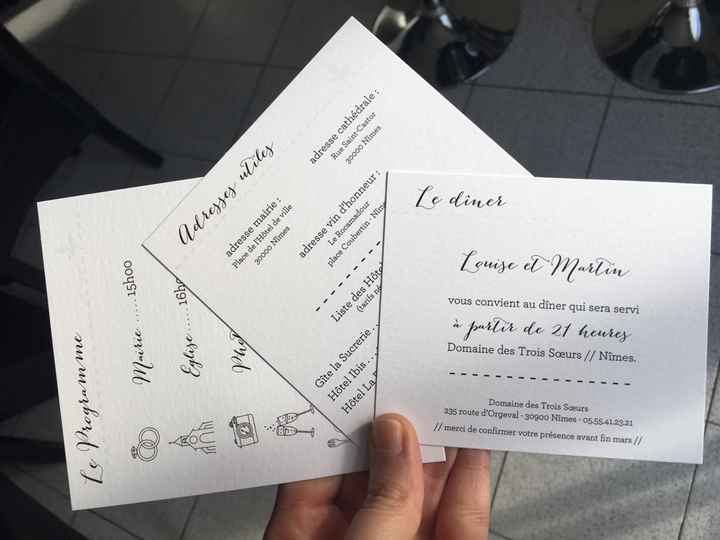 Le Programme
Mairie ......15h00
Eglise ......16h
Adresses utiles
adresse mairie :
Place de l'Hôtel de ville
30000 Nîmes
adresse cathédrale :
Rue Saint-Castor
30000 Nîmes
adresse vin d'honneur :
Le Rocamadour
place Coubertin - Nîm
Liste des Hôte
(tarifs
Gîte la Sucrerie . .
Hôtel Ibis . . .
Hôtel La
Le dîner
Louise et Martin
vous convient au dîner qui sera servi
à partir de 21 heures
Domaine des Trois Sœurs // Nîmes.
Domaine des Trois Sœurs
235 route d'Orgeval - 30900 Nîmes - 05.55.41.23.21
// merci de confirmer votre présence avant fin mars //